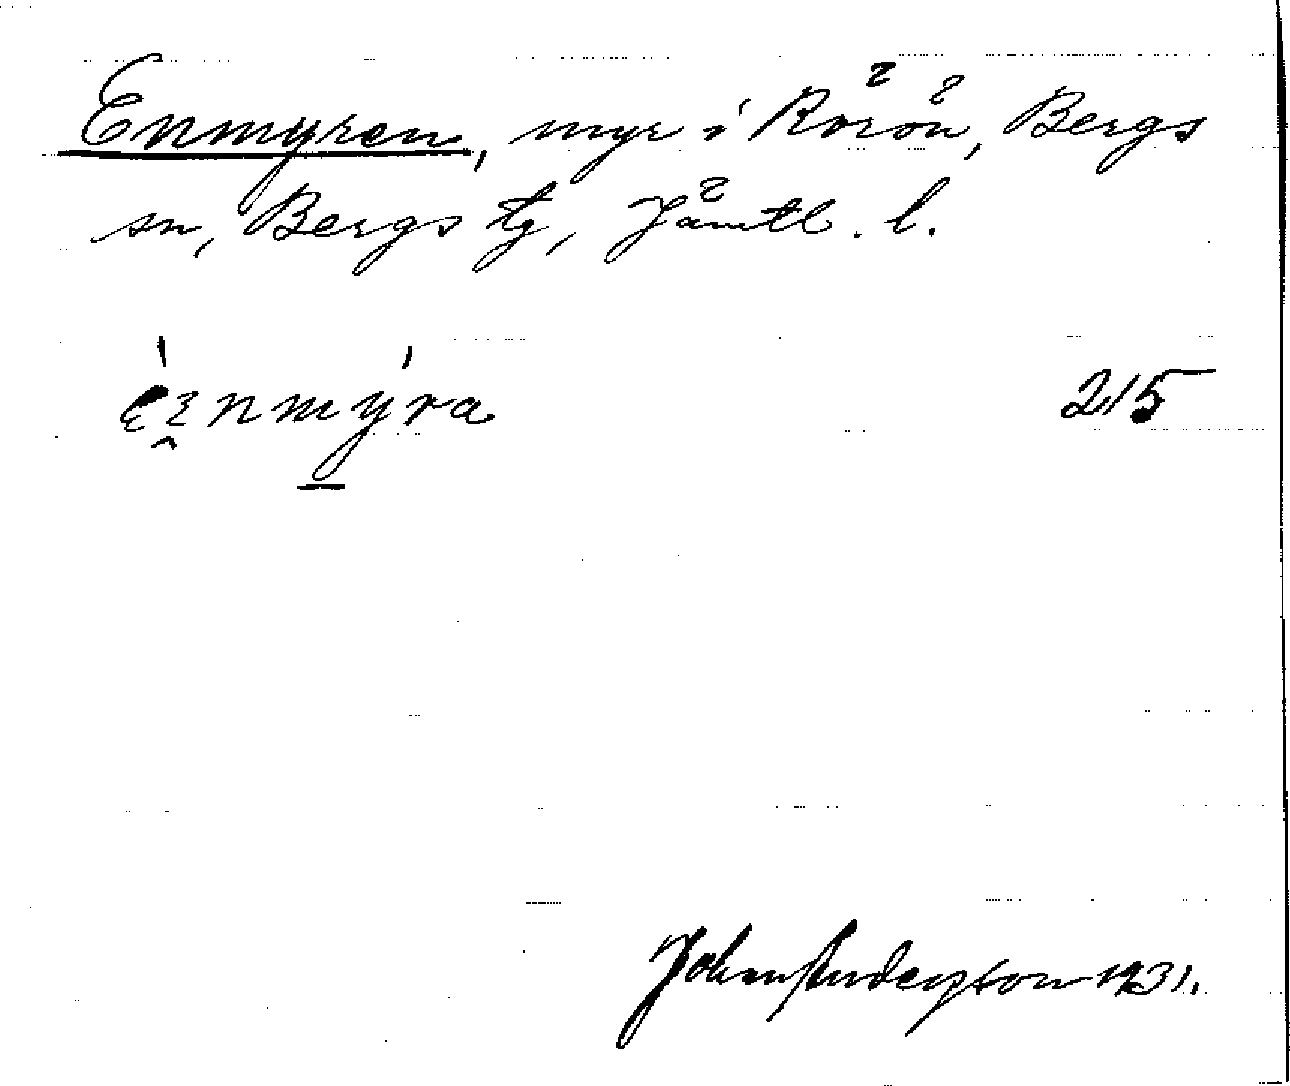 Enmyren, myr i Rörön, Bergs
sn, Bergs tg, Jämtl. l.
215
John Anderson 1931.